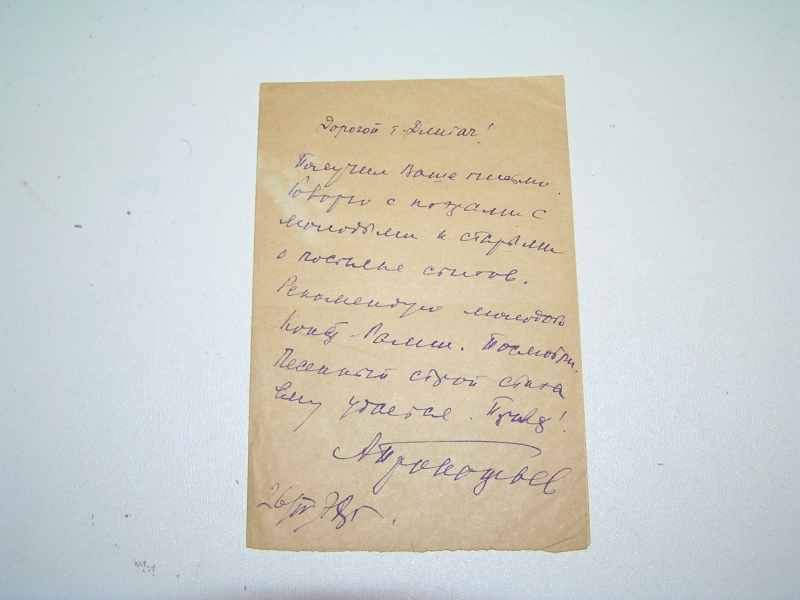 Дорогой т. Длигач!
Получил Ваше письмо.
Говорю с поэтами с
молодыми и старыми
о посылке стихов.
Рекомендую молодого
Посмотри.
Песенный строй стиха
ему удается.
А Прокофьев
26/IV